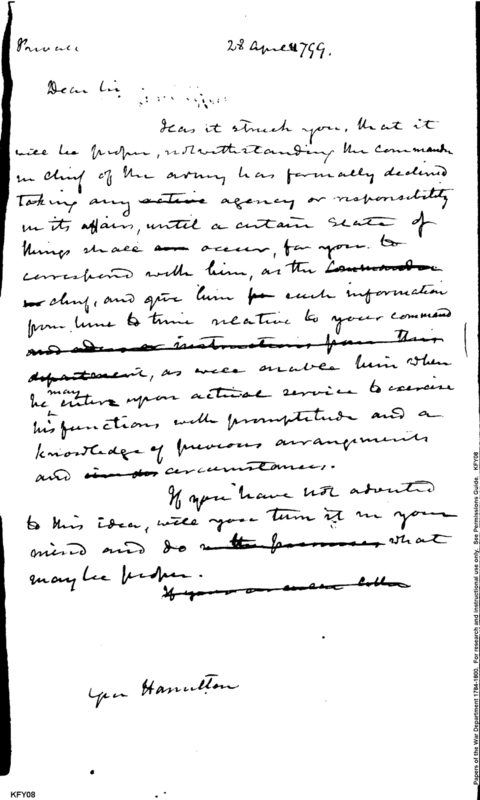 Private
28 April 1799.
Dear Sir
Has it struck you, that it
will be proper, notwithstanding the commander
in chief of the army has formally declined
taking any active agency or responsibility
in its affairs, until a certain state of
things shall occur, for you to
correspond with him, as the Commander
in chief, and give him such information
from time to time relative to your command
and orders or instructions from this
department, as will enable him when
he may enter upon actual service to exercise
his functions with promptitude and a
knowledge of previous arrangements
and circumstances.
If you have not adverted
to this idea, will you turn it in your
mind and do what
may be proper.
If your an earlier letter
Gen Hamilton
KFY08
Papers of the War Department 1784-1800. For research and instructional use only. See Permissions Guide. KFY08